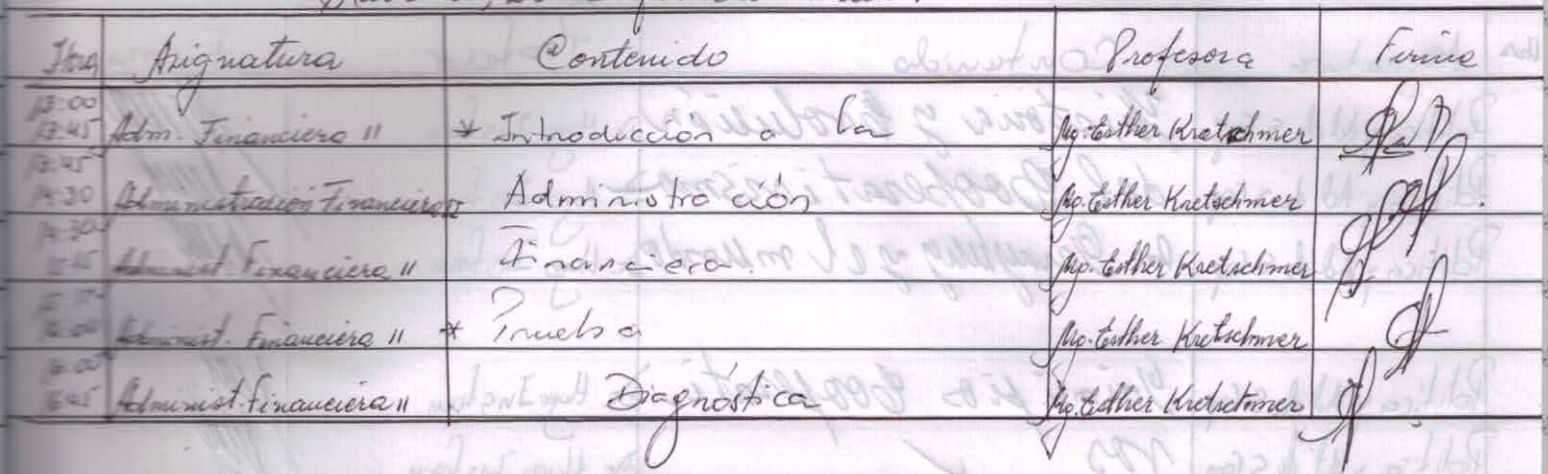 Hora Asignatura Contenido Profesora Firma
13:00
13:45 Adm. Financiera II * Introducción a la Mg. Esther Kretschmer
13:45
14:30 Administración Financiera II Administración Mg. Esther Kretschmer
14:30
Administ. Financiera II Financiera Mg. Esther Kretschmer
Administ. Financiera II * Prueba Mg. Esther Kretschmer
16:00
16:45 Administ. Financiera II Diagnóstica Mg. Esther Kretschmer